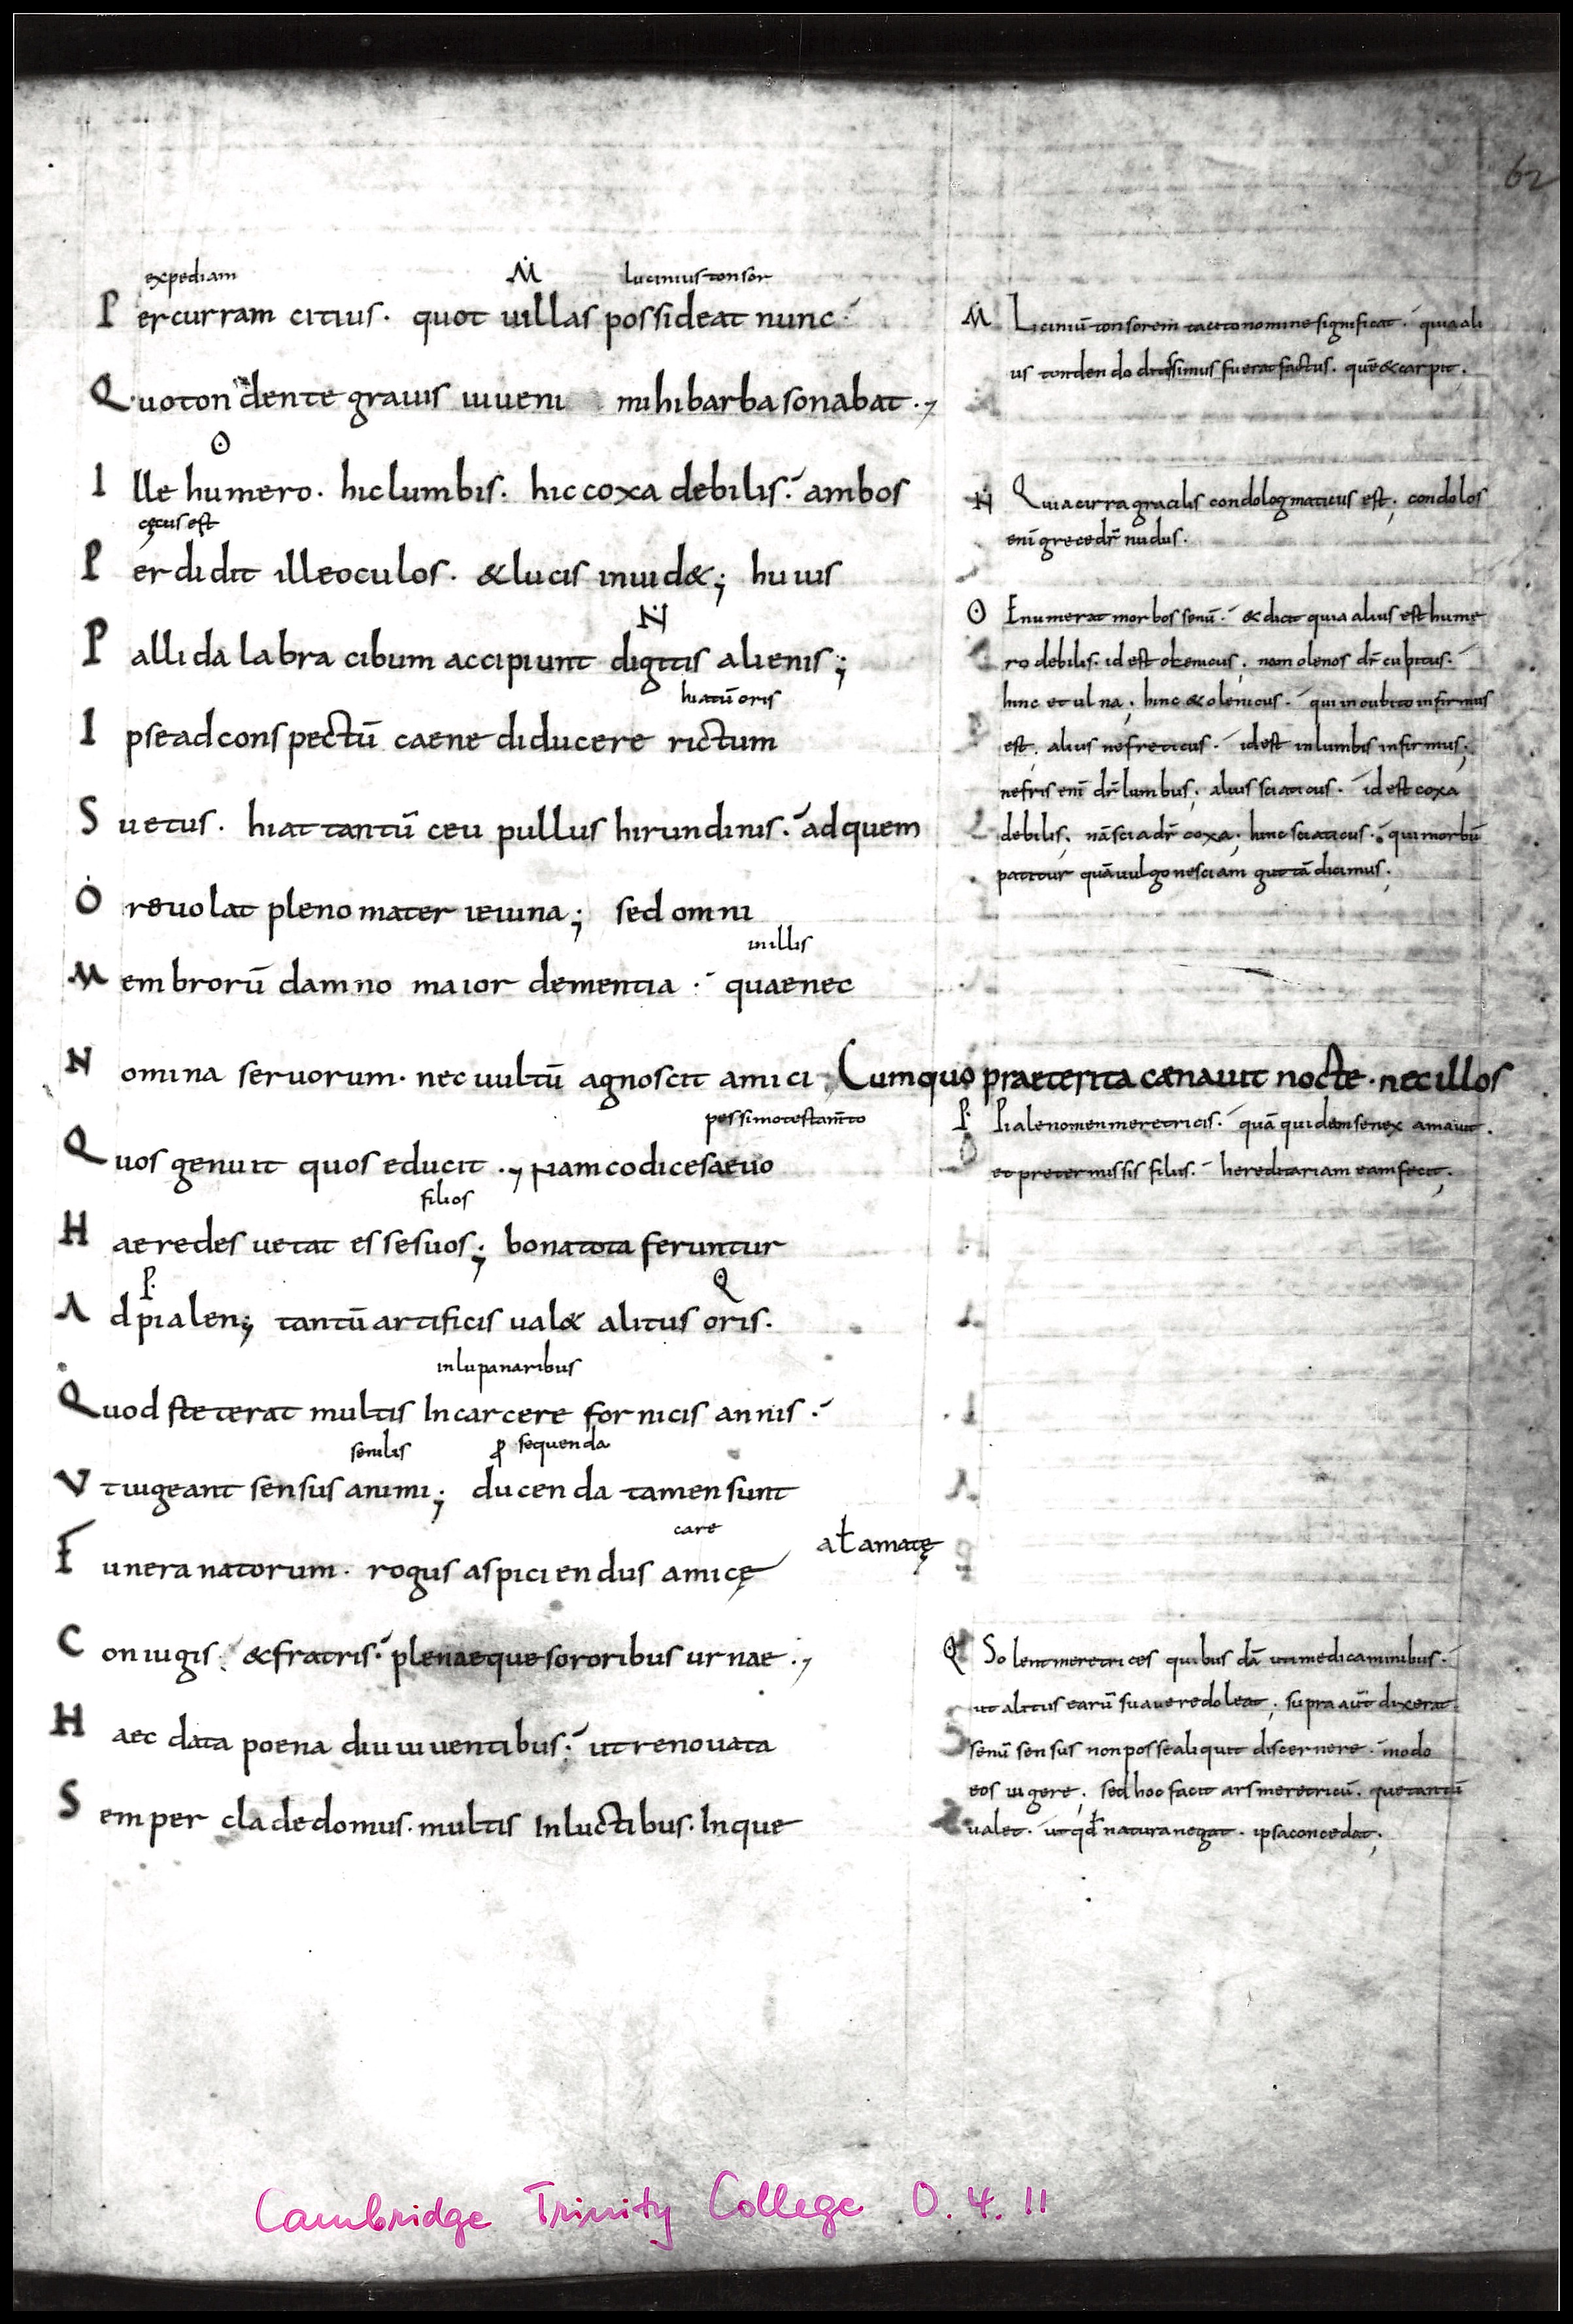 62
expediam M lucinius tonsor
Percurram citius. quot uillas possideat nunc
Quo tondente grauis iuueni mihi barba sonabat.,
O
Ille humero. hic lumbis. hic coxa debilis. ambos
cęcus est
Perdidit ille oculos. & lucis inuid&; huius
N
Pallida labra cibum accipiunt digitis alienis;
hiatū oris
Ipse ad conspectū caene diducere rictum
Suetus. hiat tantū ceu pullus hirundinis. ad quem
Ore uolat pleno mater ieiuna; sed omni
millis
Membrorū damno maior dementia. quae nec
Nomina seruorum. nec uultū agnoscit amici Cum quo praeterita caenauit nocte. nec illos
pessimo testamto
Quos genuit quos educit., Nam codice saeuo
filios
Haeredes uetat esse suos; bona tota feruntur
P Q
Ad pialen; tantū artificis ual& alitus oris.
in lupanaribus
Quod steterat multis In carcere fornicis annis.
senilis ꝓ sequenda
Vt uigeant sensus animi; ducenda tamen sunt
care
Funera natorum. rogus aspiciendus amicę ał amatę
Coniugis. & fratris. plenaeque sororibus urnae.,
Haec data poena diu uiuentibus. ut renouata
Semper clade domus. multis In luctibus. Inque
M Liciniū tonsorem tacito nomine significat. quia ali
us tondendo ditissimus fuerat factus. quē & carpit.
N Quia cirra gracilis condologmaticus est. condolos
eni grece dr̄ nudus.
O Enumerat morbos senū. & dicit quia alius est hume
ro debilis. id est olenicus. nam olenos dr̄ cubitus.
hinc et ulna. hinc & olenicus. qui in cubito infirmus
est. alius nefreticus. id est in lumbis infirmus;
nefris eni dr̄ lumbus. alius sciaticus. id est coxa
debilis. nā scia dr̄ coxa. hinc sciaticus. qui morbū
patitur quā uulgo nesciam guttā dicimus.
P Piale nomen meretricis. quā quidem senex amauit.
et pretermissis filiis. hereditariam eam fecit;
Q Solent meretrices quibus dā uti medicaminibus.
ut alitus earū suaue redoleat. supra aūt dixerat
senū sensus non posse aliquit discernere. modo
eos uigere. sed hoc facit ars meretricū. que tantū
ualet. ut qd natura negat. ipsa concedat;
Cambridge Trinity College O.4.11